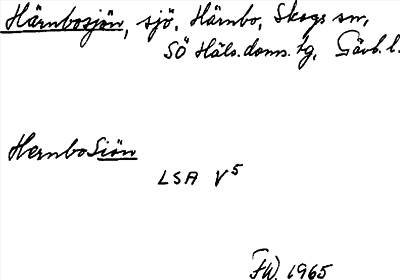 Härnbosjön, sjö, Härnbo, Skogs sn,
SÖ Häls. doms. tg, Gävb. l.
HernboSiön
LSA V5
FW. 1965